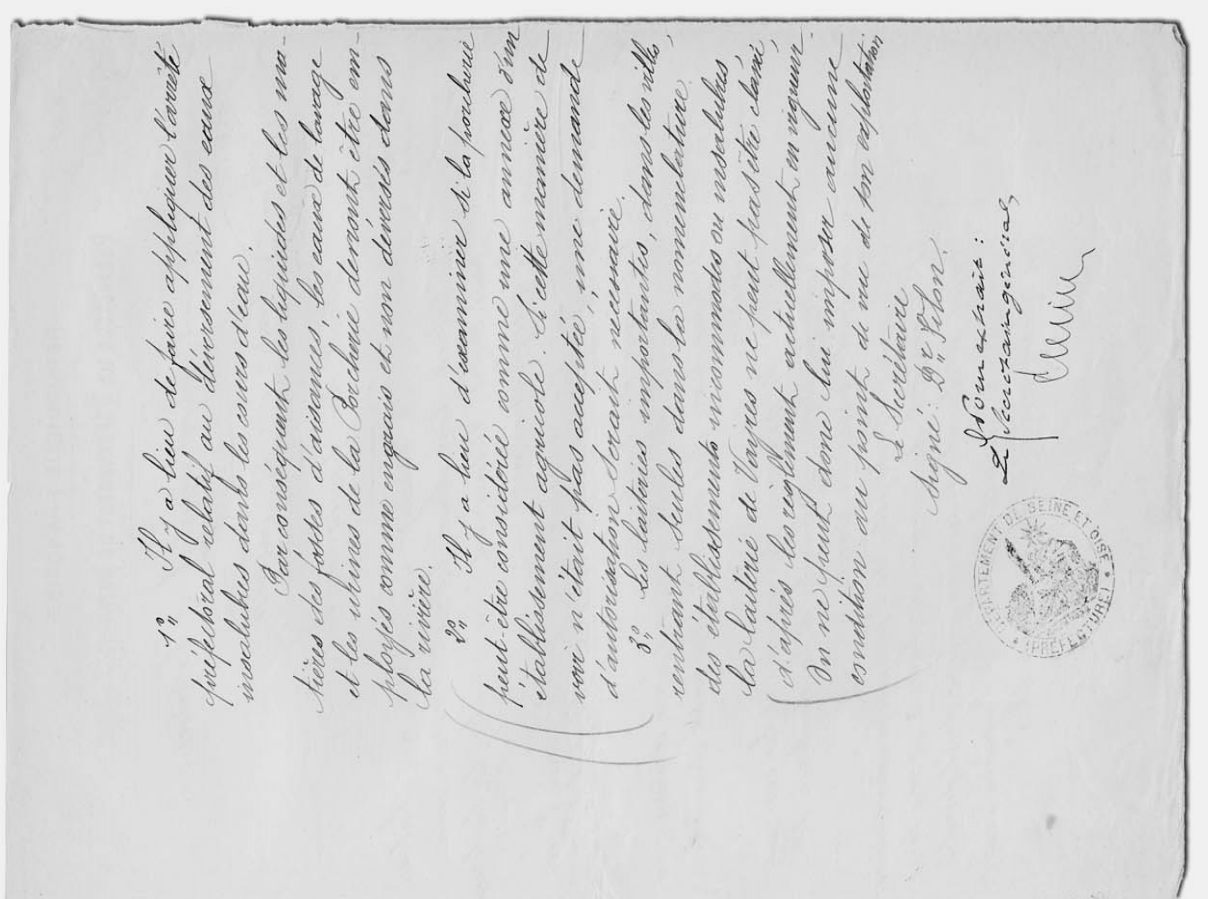 1° Il y a lieu de faire appliquer l'arrêté
préfectoral relatif au déversement des eaux
insalubres dans les cours d'eau.
Par conséquent les liquides et les ma-
tières des fosses d'aisances, les eaux de lavage
et les urines de la Porcherie devront être em-
ployés comme engrais et non déversés dans
la rivière.
2° Il y a lieu d'examiner si la porcherie
peut-être considérée comme une annexe d'un
établissement agricole. Si cette manière de
voir n'était pas acceptée, une demande
d'autorisation serait nécessaire.
3° Les laiteries importantes, dans les villes,
rentrant seules dans la nomenclature
des établissements incommodes ou insalubres
la laiterie de Vayres ne peut pas être classé,
d'après les règlements actuellement en vigueur.
On ne peut donc lui imposer aucune
condition au point de vue de son exploitation
Le Secrétaire
Signé: Dr
Pour extrait:
Le
DEPARTEMENT DE SEINE ET OISE
* (PREFECTURE) *